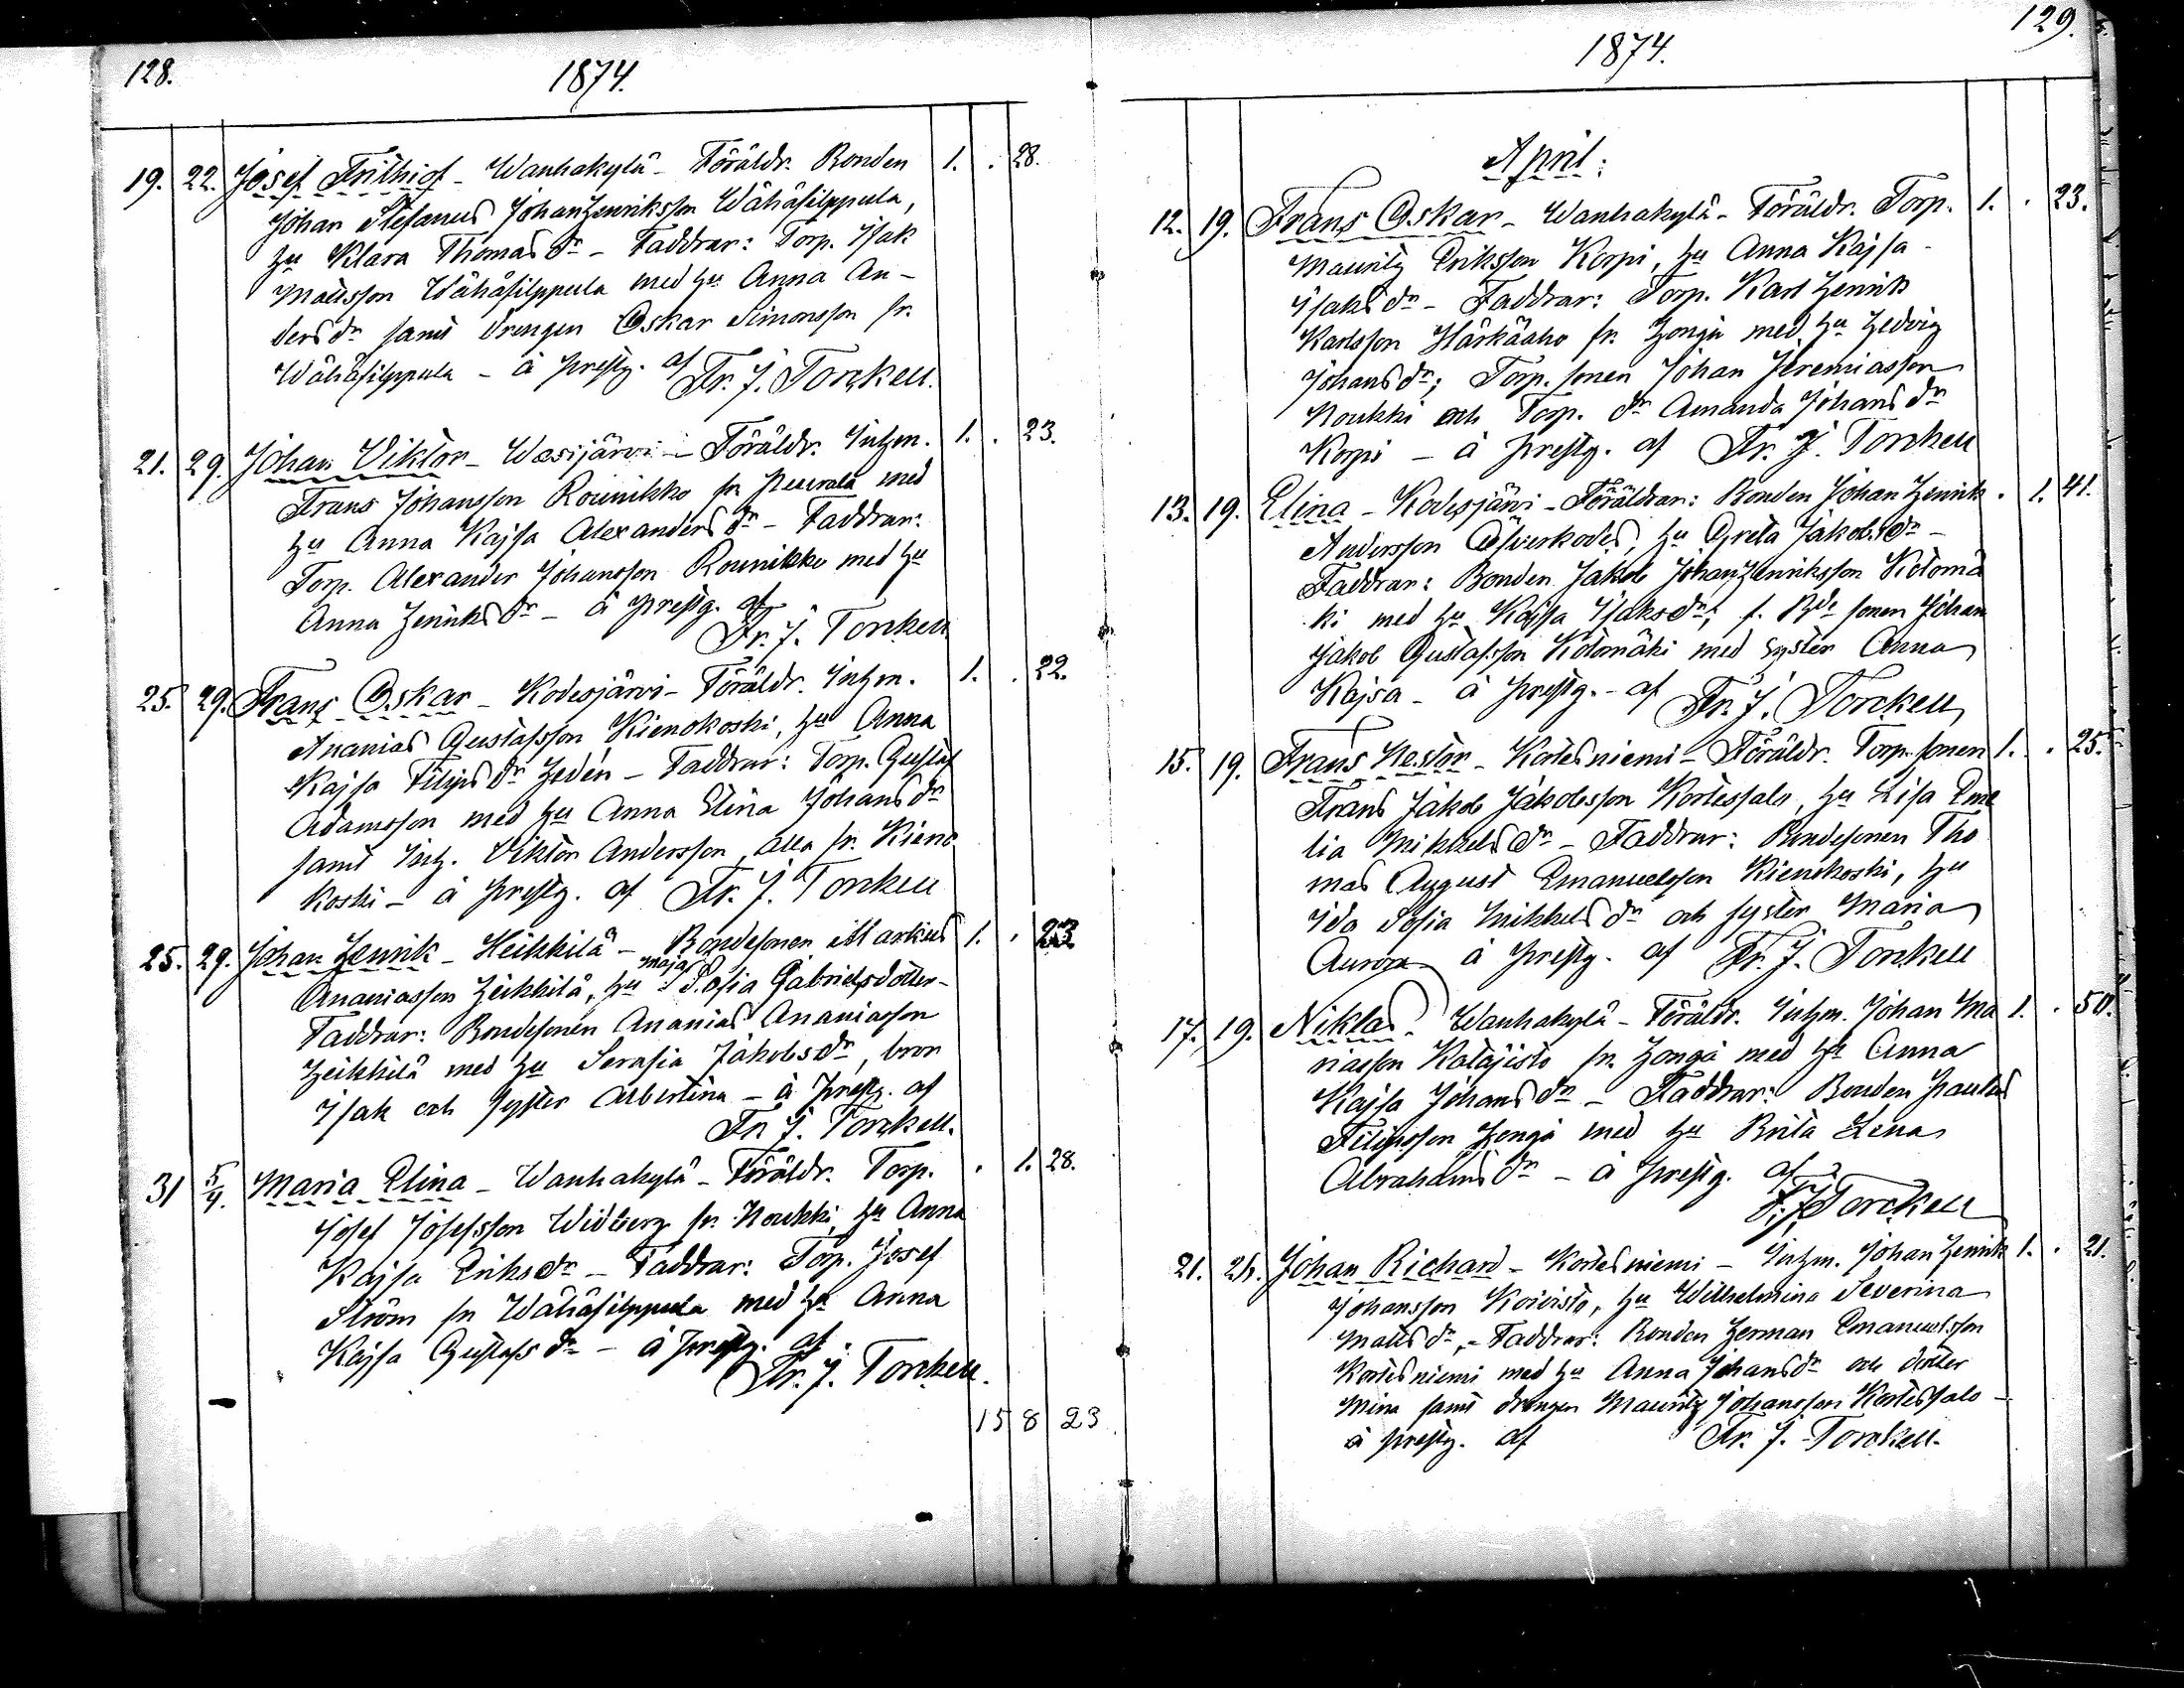 128.
1874.
19. 22. Josef Frithiof - Wanhakylä - Föräldr. Bonden 1. . 28.
Johan Stefanus JohanHenriksson Wähäfilppula,
hu Klara Thomasdr - Faddrar: Torp. Isak
Matsson Wähäfilppula med hu Anna An-
dersdr samt drengen Oskar Simonsson fr.
Wähäfilppula - å prestg. af
Fr. J. Torckell.
21. 29. Johan Viktor - Wesijärvi - Föräldr. Inhm. 1. . 23.
Frans Johansson Rounikko fr. Peurala med
hu Anna Kajsa Alexandersdr - Faddrar:
Torp. Alexander Johansson Rounikko med hu
Anna Henriksdr - å prestg. af
Fr. J. Torckell
25. 29. Frans Oskar - Kodesjärvi - Föräldr. Inhm. 1. . 22.
Ananias Gustafsson Kienokoski, hu Anna
Kajsa Filipsdr Hedén - Faddrar: Torp. Gustaf
Adamsson med hu Anna Elina Johansdr
samt Inh. Viktor Andersson, alla fr. Kieno
koski - å prestg. af Fr. J. Torckell
25. 29. Johan Henrik - Heikkilä - Bondesonen Markus 1. . 23
Ananiasson Heikkilä, hu Maja Sofia Gabrielsdotter -
Faddrar: Bondesonen Ananias Ananiasson
Heikkilä med hu Serafia Jakobsdr, bror
Isak och syster Albertina - å prestg. af
Fr. J. Torckell.
31 5/4. Maria Elina - Wanhakylä - Föräldr. Torp. . 1. 28.
Josef Josefsson Widberg fr. Noukki, hu Anna
Kajsa Eriksdr - Faddrar: Torp. Josef
Ström fr Wähäfilppula med hu Anna
Kajsa Gustafsdr - å prestg. af
Fr. J. Torckell.
15 8 23
129.
1874.
April:
12. 19. Frans Oskar - Wanhakylä - Föräldr. Torp. 1. . 23.
Mauritz Eriksson Korpi, hu Anna Kajsa
Isaksdr - Faddrar: Torp. Karl Henrik
Karlsson Härkäaho fr. Honga med hu Hedvig
Johansdr; Torp. sonen Johan Jeremiasson
Noukki och Torp. dr Amanda Johansdr
Korpi - å prestg. af Fr. J. Torckell
13. 19. Elina - Kodesjärvi - Föräldrar: Bonden Johan Henrik . 1. 41.
Andersson Öfverkodes, hu Greta Jakobsdr -
Faddrar: Bonden Jakob JohanHenriksson Kotomä
ki med hu Kajsa Isaksdr; f. Bde sonen Johan
Jakob Gustafsson Kotomäki med syster Anna
Kajsa - å prestg. - af Fr. J. Torckell
15. 19. Frans Nestor - Kortesniemi - Föräldr. Torp. sonen 1. . 25.
Frans Jakob Jakobsson Kortessalo, hu Lisa Eme
lia Mikkelsdr - Faddrar: Bondesonen Tho
mas August Emanuelsson Kienokoski, hu
Ida Sofia Mikkelsdr och syster Maria
Aurora å prestg. af Fr. J. Torckell
17. 19. Niklas - Wanhakylä - Föräldr. Inhm. Johan Ma 1. . 50.
niasson Katajisto fr. Honga med hu Anna
Kajsa Johansdr - Faddrar: Bonden Paulus
Filipsson Honga med hu Brita Lena
Abrahamsdr - å prestg. af
F. J. Torckell
21. 26. Johan Richard - Kortesniemi - Inhm. Johan Henrik 1. . 21.
Johansson Koivisto, hu Wilhelmina Severina
Matsdr, - Faddrar: Bonden Herman Emanuelsson
Kortesniemi med hu Anna Johansdr och dotter
Mina samt drengen Mauritz Johansson Kortessalo -
å prestg. af Fr. J. Torckell.